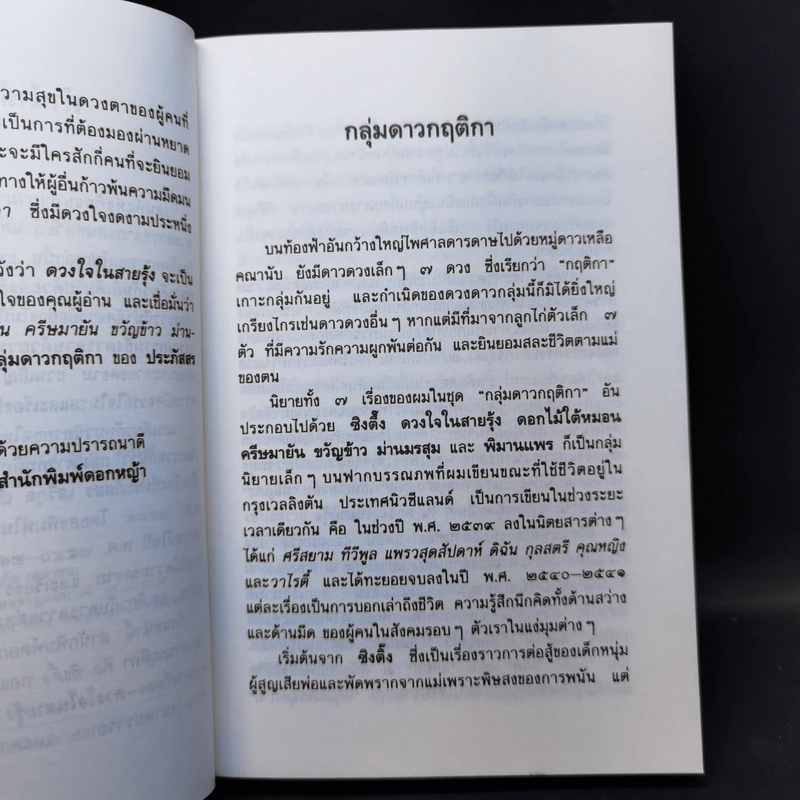 ความสุขในดวงตาของผู้คนที่
เป็นการที่ต้องมองผ่านหยาด
จะมีใครสักกี่คนที่จะยินยอม
ทางให้ผู้อื่นก้าวพ้นความมืดมน
ซึ่งมีดวงใจงดงามประหนึ่ง
ว่า ดวงใจในสายรุ้ง จะเป็น
ใจของคุณผู้อ่าน และเชื่อมั่นว่า
ครีษมายัน ขวัญข้าว ม่าน-
ลุ่มดาวกฤติกา ของ ประภัสสร
ด้วยความปรารถนาดี
สำนักพิมพ์ดอกหญ้า
กลุ่มดาวกฤติกา
บนท้องฟ้าอันกว้างใหญ่ไพศาลดารดาษไปด้วยหมู่ดาวเหลือ
คณานับ ยังมีดาวดวงเล็กๆ ๗ ดวง ซึ่งเรียกว่า “กฤติกา”
เกาะกลุ่มกันอยู่ และกำเนิดของดวงดาวกลุ่มนี้ก็มิได้ยิ่งใหญ่
เกรียงไกรเช่นดาวดวงอื่นๆ หากแต่มีที่มาจากลูกไก่ตัวเล็ก ๗
ตัว ที่มีความรักความผูกพันต่อกัน และยินยอมสละชีวิตตามแม่
ของตน
นิยายทั้ง ๗ เรื่องของผมในชุด “กลุ่มดาวกฤติกา” อัน
ประกอบไปด้วย ซิงตึ๊ง ดวงใจในสายรุ้ง ดอกไม้ใต้หมอน
ครีษมายัน ขวัญข้าว ม่านมรสุม และ พิมานแพร ก็เป็นกลุ่ม
นิยายเล็กๆ บนฟากบรรณภพที่ผมเขียนขณะที่ใช้ชีวิตอยู่ใน
กรุงเวลลิงตัน ประเทศนิวซีแลนด์ เป็นการเขียนในช่วงระยะ
เวลาเดียวกัน คือ ในช่วงปี พ.ศ. ๒๕๓๙ ลงในนิตยสารต่างๆ
ได้แก่ ศรีสยาม ทีวีพูล แพรวสุดสัปดาห์ ดิฉัน กุลสตรี คุณหญิง
และวาไรตี้ และได้ทะยอยจบลงในปี พ.ศ. ๒๕๔๐–๒๕๔๑
แต่ละเรื่องเป็นการบอกเล่าถึงชีวิต ความรู้สึกนึกคิดทั้งด้านสว่าง
และด้านมืด ของผู้คนในสังคมรอบๆ ตัวเราในแง่มุมต่างๆ
เริ่มต้นจาก ซิงตึ๊ง ซึ่งเป็นเรื่องราวการต่อสู้ของเด็กหนุ่ม
ผู้สูญเสียพ่อและพัดพรากจากแม่เพราะพิษสงของการพนัน แต่